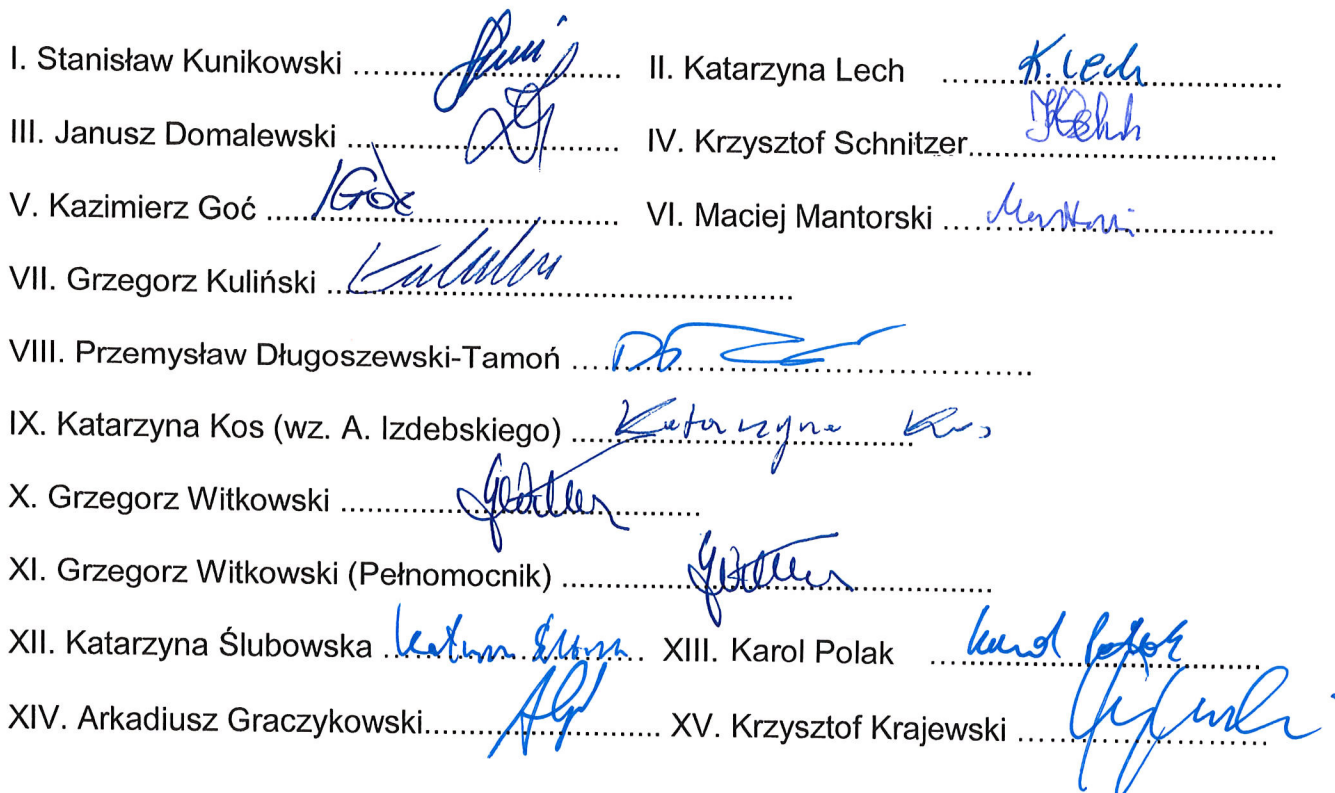 I. Stanisław Kunikowski .................................. II. Katarzyna Lech .................................. K. Lech
III. Janusz Domalewski .................................. IV. Krzysztof Schnitzer..................................
V. Kazimierz Goć .................................. KGoć VI. Maciej Mantorski ..................................
VII. Grzegorz Kuliński ..................................
VIII. Przemysław Długoszewski-Tamoń ..................................
IX. Katarzyna Kos (wz. A. Izdebskiego) .................................. Katarzyna Kos
X. Grzegorz Witkowski ..................................
XI. Grzegorz Witkowski (Pełnomocnik) ..................................
XII. Katarzyna Ślubowska .................................. XIII. Karol Polak .................................. Karol Polak
XIV. Arkadiusz Graczykowski.................................. XV. Krzysztof Krajewski ..................................